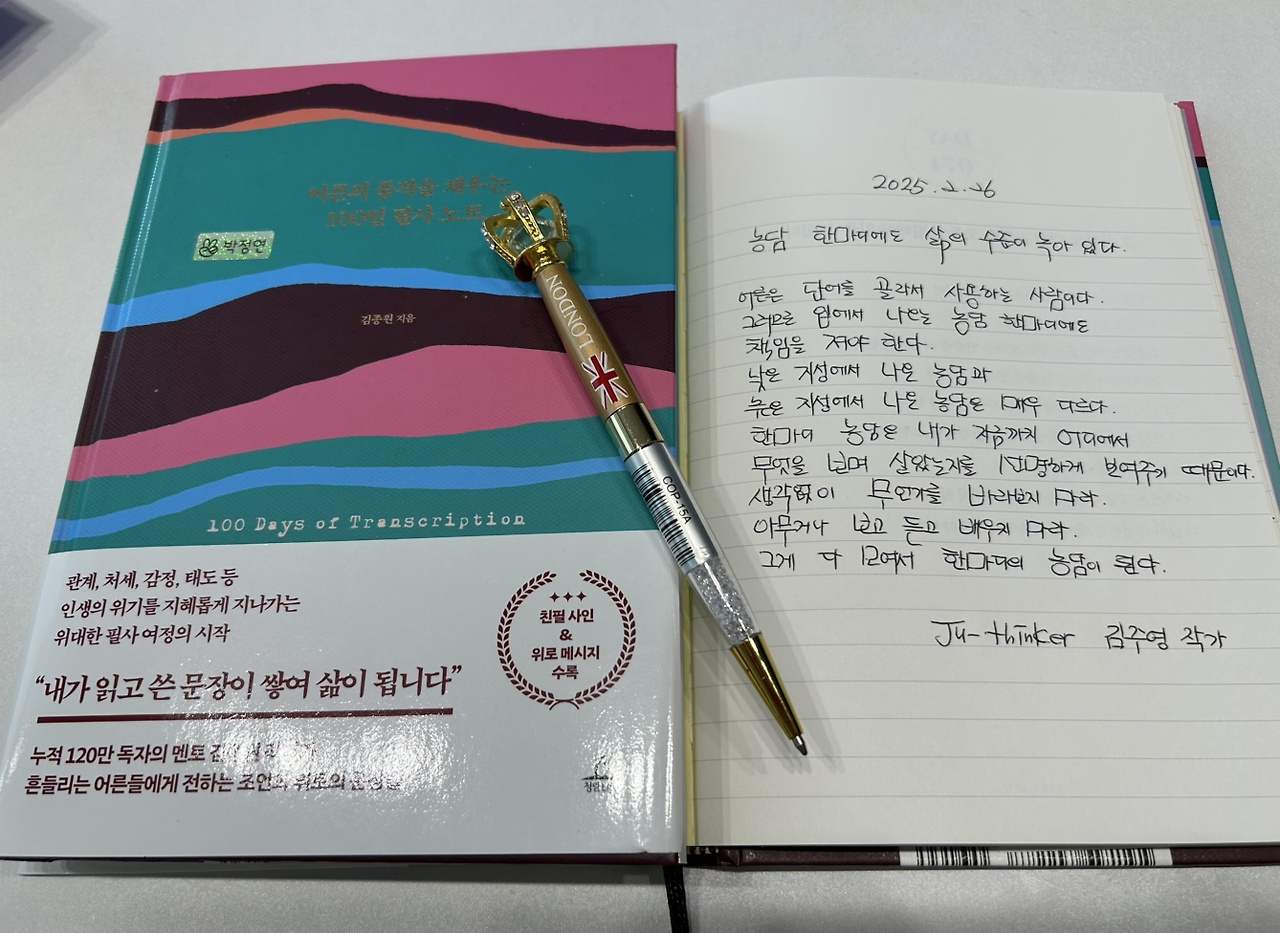 어른의 품격을 채우는
100일 필사 노트
박정연
김종원 지음
LONDON
COP-15A
100 Days of Transcription
관계, 처세, 감정, 태도 등
인생의 위기를 지혜롭게 지나가는
위대한 필사 여정의 시작
“내가 읽고 쓴 문장이 쌓여 삶이 됩니다”
누적 120만 독자의 멘토
흔들리는 어른들에게 전하는 조언과 위로의
친필 사인
&
위로 메시지
수록
2025.2.26
농담 한마디에도 삶의 수준이 녹아 있다.
어른은 단어를 골라서 사용하는 사람이다.
그러므로 입에서 나오는 농담 한마디에도
책임을 져야 한다.
낮은 지성에서 나온 농담과
높은 지성에서 나온 농담은 매우 다르다.
한마디 농담은 내가 지금까지 어디에서
무엇을 보며 살았는지를 선명하게 보여주기 때문이다.
생각없이 무언가를 바라보지 마라.
아무거나 보고 듣고 배우지 마라.
그게 다 모여서 한마디의 농담이 된다.
Ju-thinker 김주영 작가